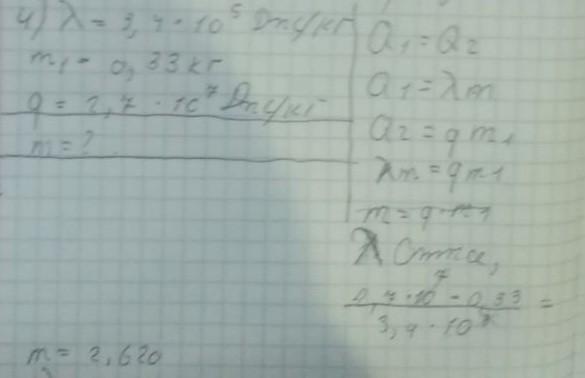 4) λ = 3,4 · 10⁵ Дж/кг
m₁ - 0,33 кг
q = 2,7 · 10⁷ Дж/кг
m = ?
Q₁ = Q₂
Q₁ = λm
Q₂ = q m₁
λm = q m₁
m = q · m₁
λ
2,7 · 10⁷ - 0,33 =
3,4 · 10⁵
m = 2,620